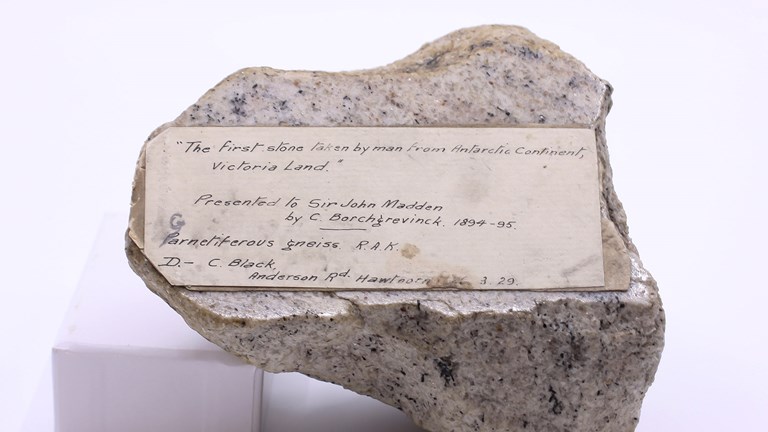 "The first stone taken by man from Antarctic Continent,
Victoria Land."
Presented to Sir John Madden
by C. Borchgrevinck. 1894-95.
G
Parnetiferous gneiss. R.A.K.
D.- C. Black,
Anderson Rd. Hawthorn 3. 29.